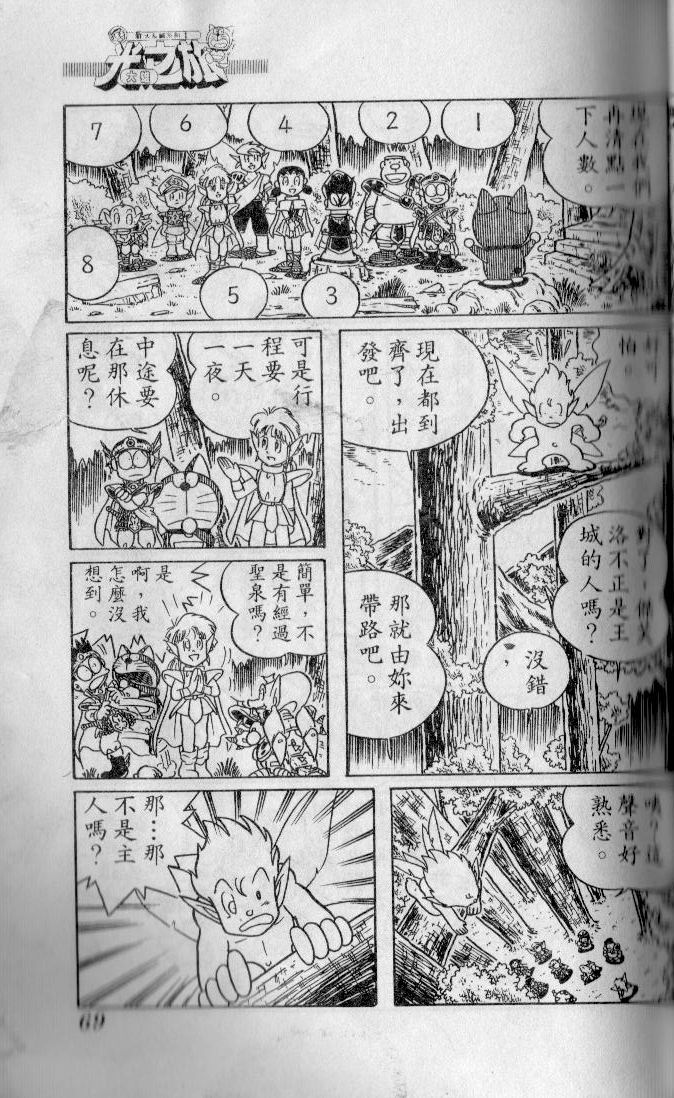 光之旅
六四
現在我們
再清點一
下人數。
1
2
3
4
5
6
7
8
現在都到
齊了，出
發吧。
怕。
洛不正是主
城的人嗎？
沒錯，
那就由妳來
帶路吧。
可是行
程要
一天
一夜。
中途要
在那休
息呢？
簡單，不
是有經過
聖泉嗎？
是
啊，我
怎麼沒
想到。
咦？這
聲音好
熟悉。
那…那
不是主
人嗎？
69